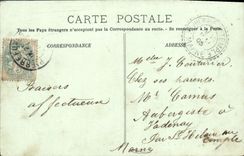 CARTE POSTALE
Tous les Pays étrangers n'acceptent pas la correspondance au recto. - Se renseigner à la Poste.
CORRESPONDANCE
ADRESSE
Baisers
affectueux
Chez ses parents
Mr Camus
Aubergiste à
Vadenay
Par St Hilaire au Temple
Marne